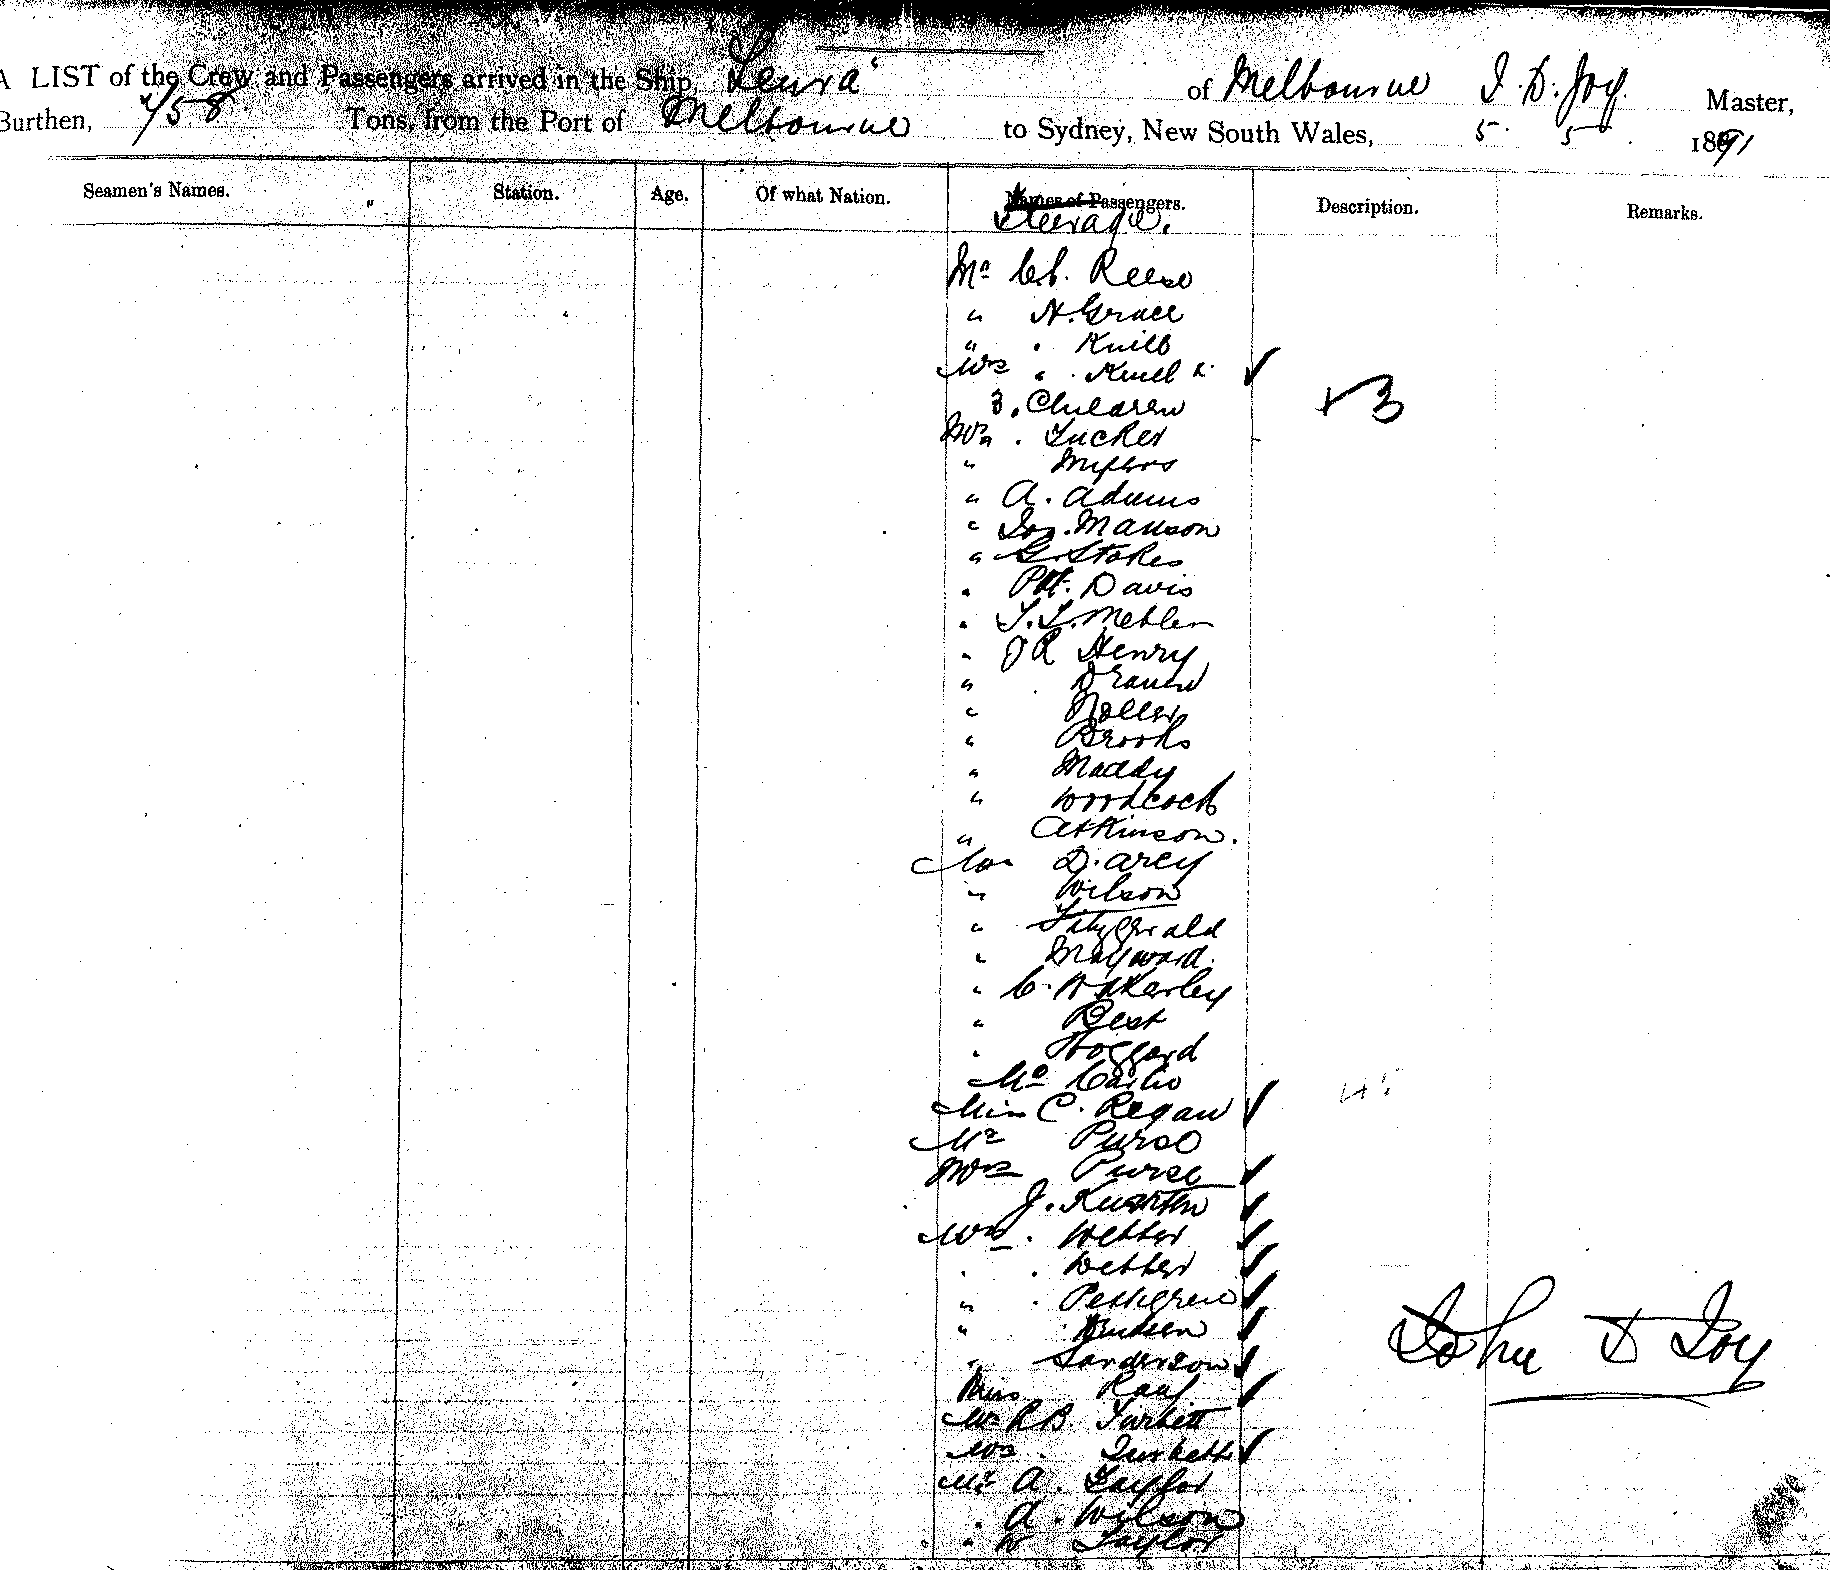 A LIST of the Crew and Passengers arrived in the Ship "Leura" of Melbourne J. D. Joy. Master,
Burthen, 758 Tons, from the Port of Melbourne to Sydney, New South Wales, 5. 5. 1891
Seamen's Names. Station. Age. Of what Nation. Names of Passengers. Description. Remarks.
Steerage.
Mr Ch. Reese
" N. Grace
" Knill
Mrs " Knill
3. Children +3
Mr. Tucker
" Myers
" A. Adams
" Jos. Manson
" G. Stokes
" Pat. Davis
" T. L. Mehler
" J R Henry
"
" Noller
" Brooks
" Maddy
" Woodcock
" Atkinson.
Mr D.arcy
" Wilson
" Fitzgerald
" Mayward.
" C.
" Best
" Hoggard
Mr
Miss C. Regan
Mr Purse
Mrs Purse
J.
Mrs. Webber
" Webber
" Pettigrew
"
" Sanderson
Miss Raaf
Mr R B. Turbett
Mrs. Turbett
Mr A. Taylor
" A. Wilson
" W Taylor
John D Joy